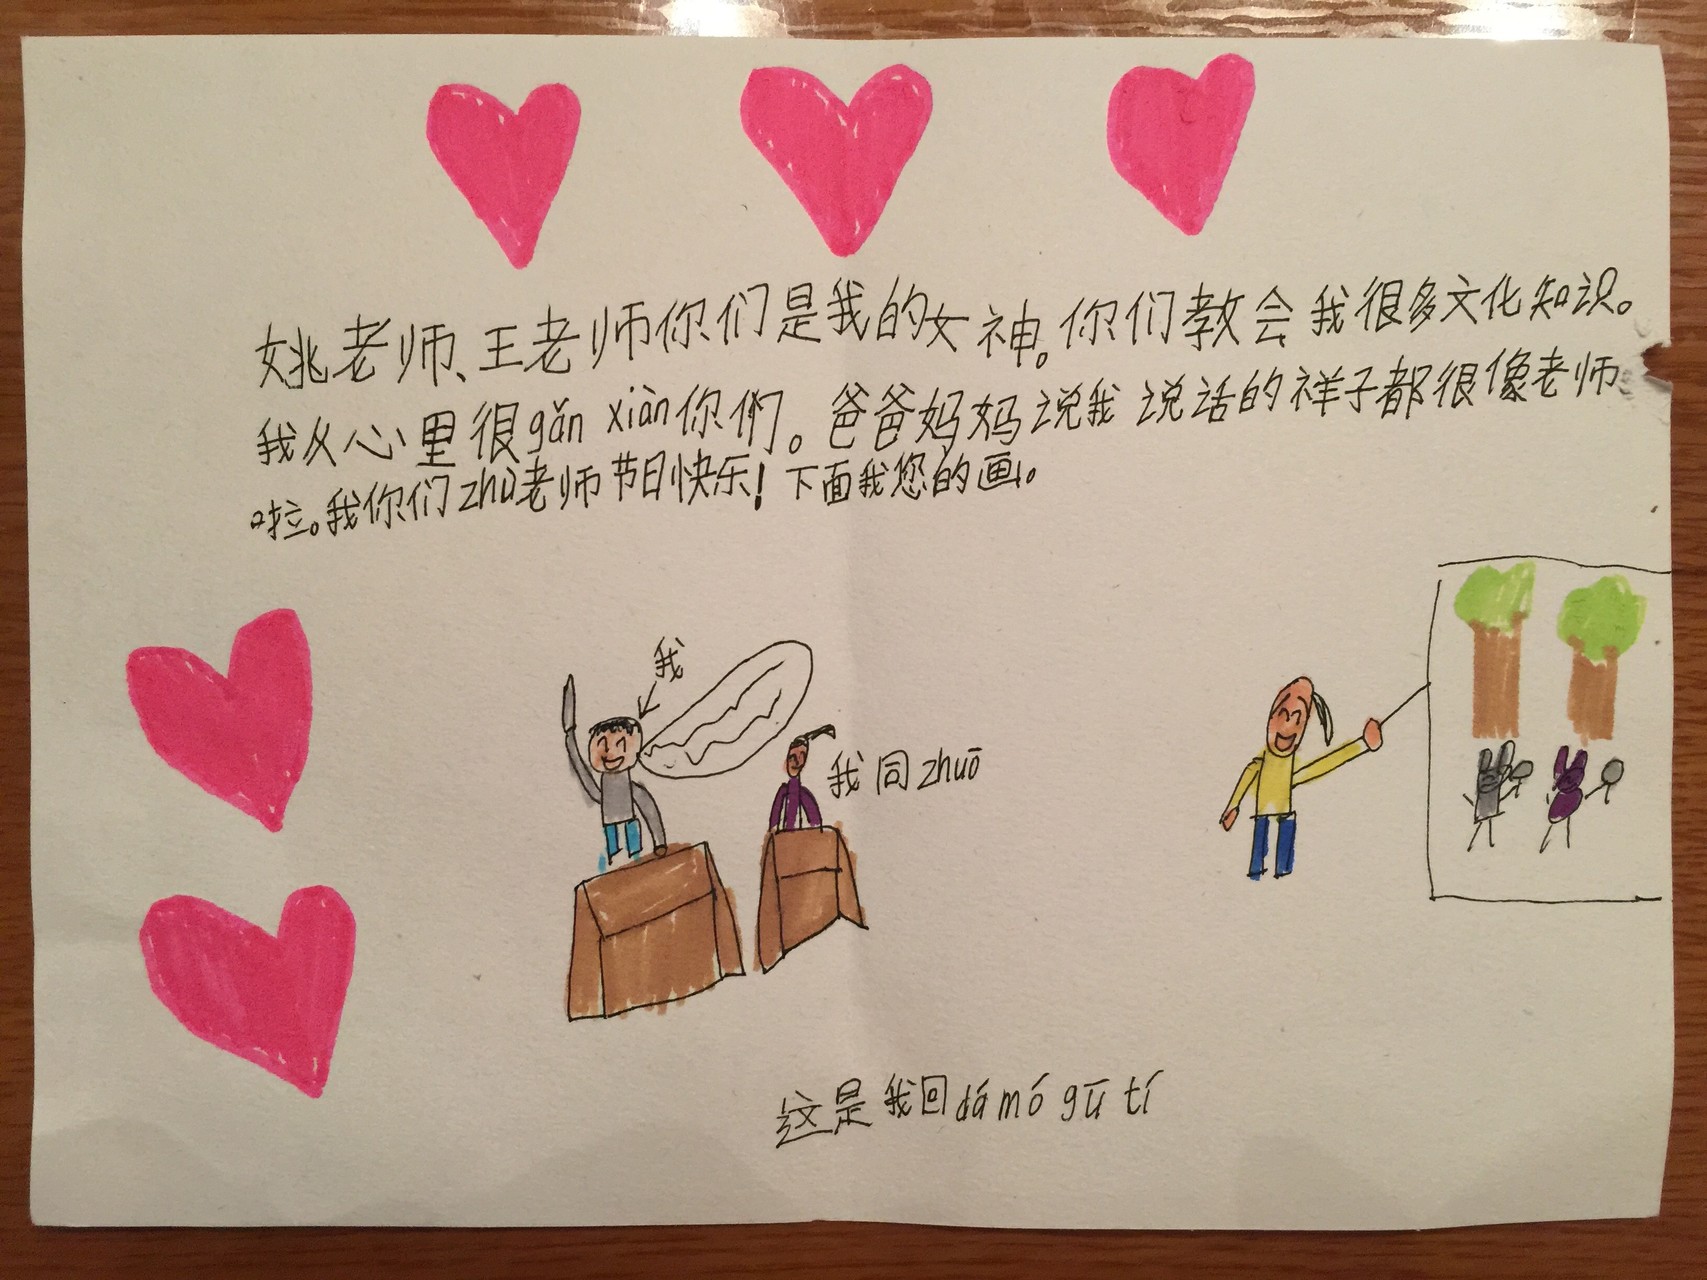 姚老师、王老师你们是我的女神。你们教会我很多文化知识。
我从心里很gǎn xiàn你們。爸爸妈妈说我说话的祥子都很像老师
啦。我你们zhù老师节日快乐！下面我您的画。
我
我同zhuō
这是我回dá mó gū tí